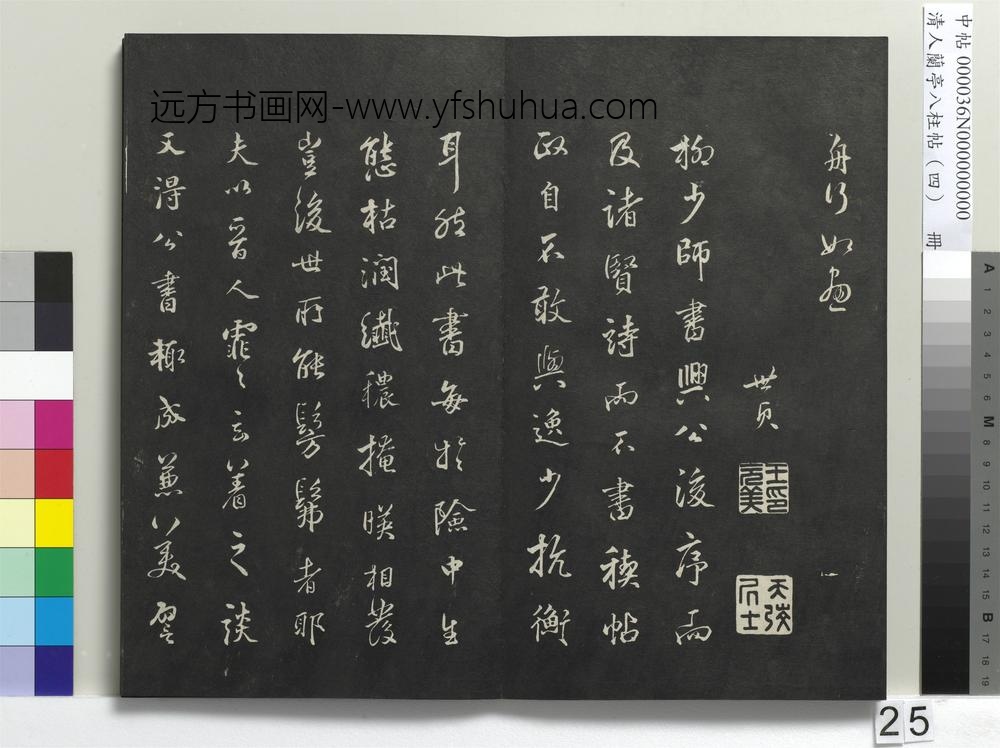 中帖 000036N000000000
清人蘭亭八柱帖（四） 冊
远方书画网-www.yfshuhua.com
舟行如画
世貞
柳少師書興公後序而
及諸賢詩而不書禊帖
政自不敢與逸少抗衡
耳然此書每於險中生
態枯潤纖穠掩映相發
豈後世所能髣髴者耶
夫以晉人霏々言著之談
又得公書極成兼八美
25
A 1 2 3 4 5 6 M 8 9 10 11 12 13 14 15 B 17 18 19